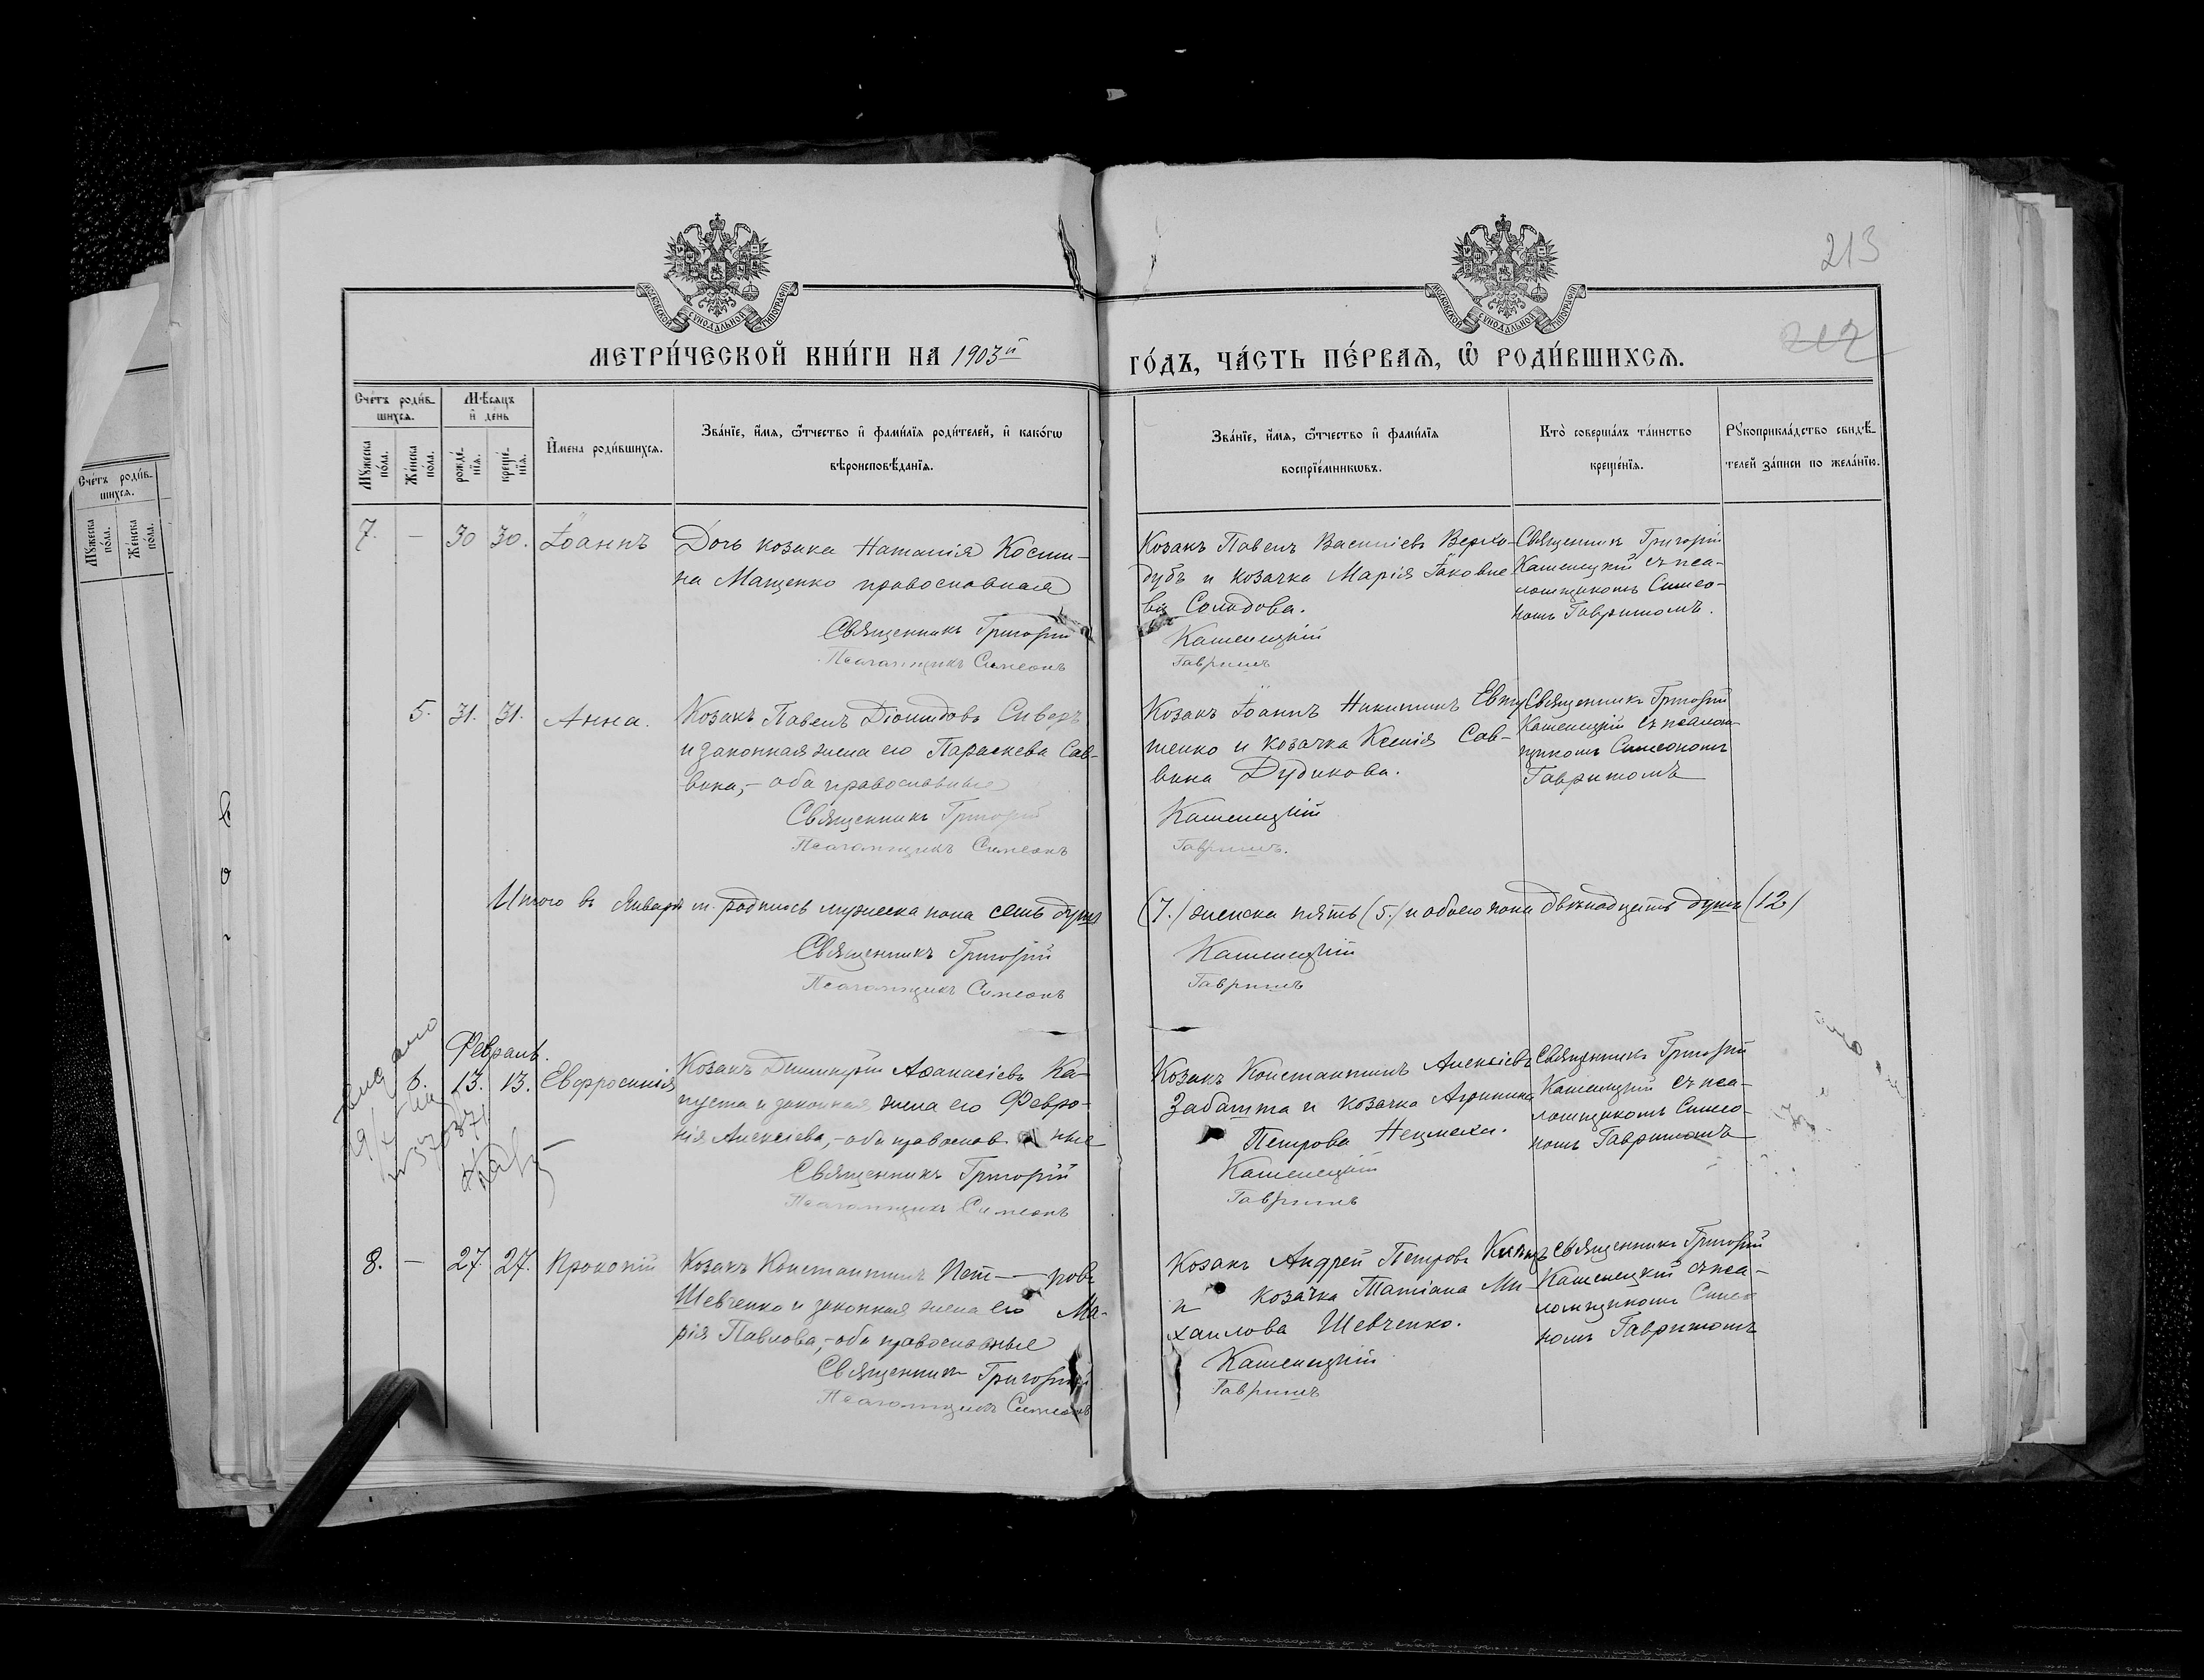 МОСКОВСКОЙ СУНОДАЛЬНОЙ ТИПОГРАФІИ
МОСКОВСКОЙ СУНОДАЛЬНОЙ ТИПОГРАФІИ
213
212
МЕТРИ́ЧЕСКОЙ КНИ́ГИ НА 1903й
ГО́ДЪ, ЧА́СТЬ ПЕ́РВАѦ, Ѡ҆ РОДИ́ВШИХСѦ.
Сче́тъ роди́в-
шихсѧ.
Мꙋ́жеска по́ла.
Же́нска по́ла.
Мѣ́сѧцъ
и҆ де́нь
рожде́-
нїѧ.
креще́-
нїѧ.
И҆мена роди́вшихсѧ.
Зва́нїе, и҆́мѧ, ѻ҆́тчество и҆ фами́лїѧ роди́телей, и҆ како́гѡ
вѣроисповѣ́данїѧ.
Зва́нїе, и҆́мѧ, ѻ҆́тчество и҆ фами́лїѧ
воспрїе́мникѡвъ.
Кто̀ соверша́лъ та́инство
креще́нїѧ.
Рꙋкоприкла́дство свидѣ́-
телей за́писи по жела́нїю.
Сче́тъ роди́в-
шихсѧ.
Мꙋ́жеска по́ла.
Же́нска по́ла.
7. — 30 30. Іоаннъ
Дочь козака Наталія Кости-
на Мащенко православная
Священникъ Григорій
Псаломщикъ Симеонъ
Козакъ Павелъ Василіевъ Верхо-
дубъ и козачка Марія Іаковле
ва Солодова.
Каменецкій
Гавришъ
Священникъ Григорій
Каменецкій съ пса-
ломщикомъ Симео-
номъ Гавришомъ.
5. 31. 31. Анна.
Козакъ Павелъ Діомидовъ Сиверъ
и законная жена его Параскева Сав-
вина, – оба православные
Священникъ Григорій
Псаломщикъ Симеонъ
Козакъ Іоаннъ Никитинъ Евту
шенко и козачка Ксенія Сав-
вина Дудикова.
Каменецкій
Гавришъ.
Священникъ Григорій
Каменецкій съ псалом-
щикомъ Симеономъ
Гавришомъ
Итого въ Январѣ м. родилось мужеска пола семь душъ
(7.) женска пять (5.) и обоего пола двѣнадцать душъ (12)
Священникъ Григорій
Псаломщикъ Симеонъ
Каменецкій
Гавришъ
Февраль.
6. 13. 13. Евфросинія
Козакъ Димитрій Аѳанасіевъ Ка-
пуста и законная жена его Февро-
нія Алексіева, – оба православ ные
Священникъ Григорій
Псаломщикъ Симеонъ
Козакъ Константинъ Алексіевъ
Забашта и козачка Агрипина
Петрова
Каменецкій
Гавришъ
Священникъ Григорій
Каменецкій съ пса-
ломщикомъ Симео-
номъ Гавришомъ
8. — 27. 27. Прокопій
Козакъ Константинъ Пет— ровъ
Шевченко и законная жена его Ма-
рія Павлова, – оба православные
Священникъ Григорій
Псаломщикъ Симеонъ
Козакъ Андрей Петровъ
и козачка Татіана Ми-
хаилова Шевченко.
Каменецкій
Гавришъ
Священникъ Григорій
Каменецкій съ пса-
ломщикомъ Симео
номъ Гавришомъ